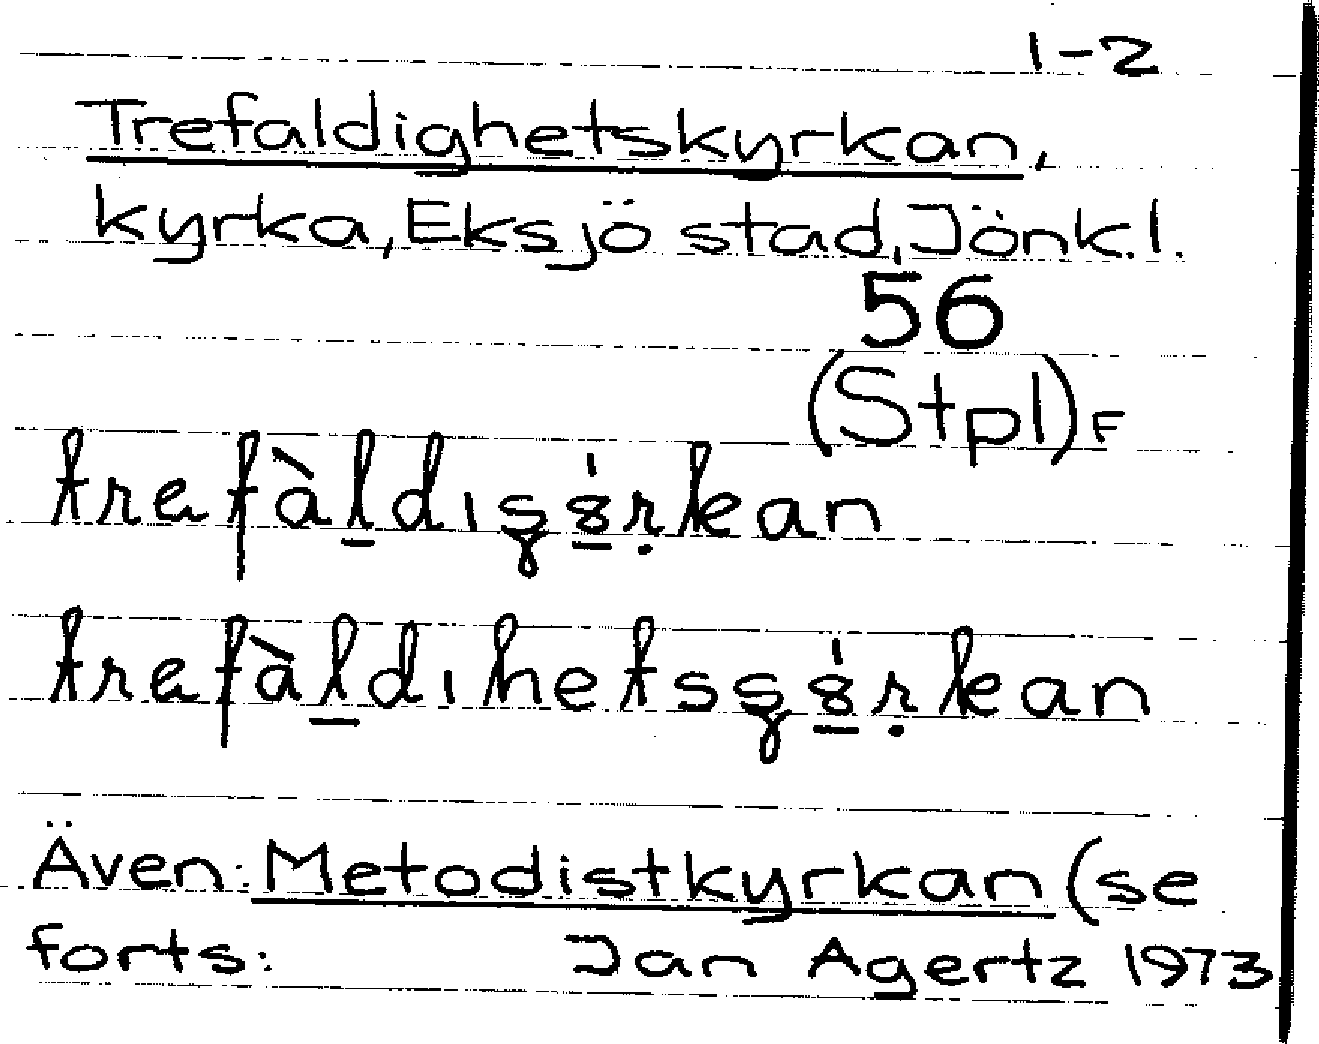 1-2
Trefaldighetskyrkan,
kyrka, Eksjö stad, Jönk.l.
56
(Stpl)F
Även: Metodistkyrkan (se
forts: Jan Agertz 1973